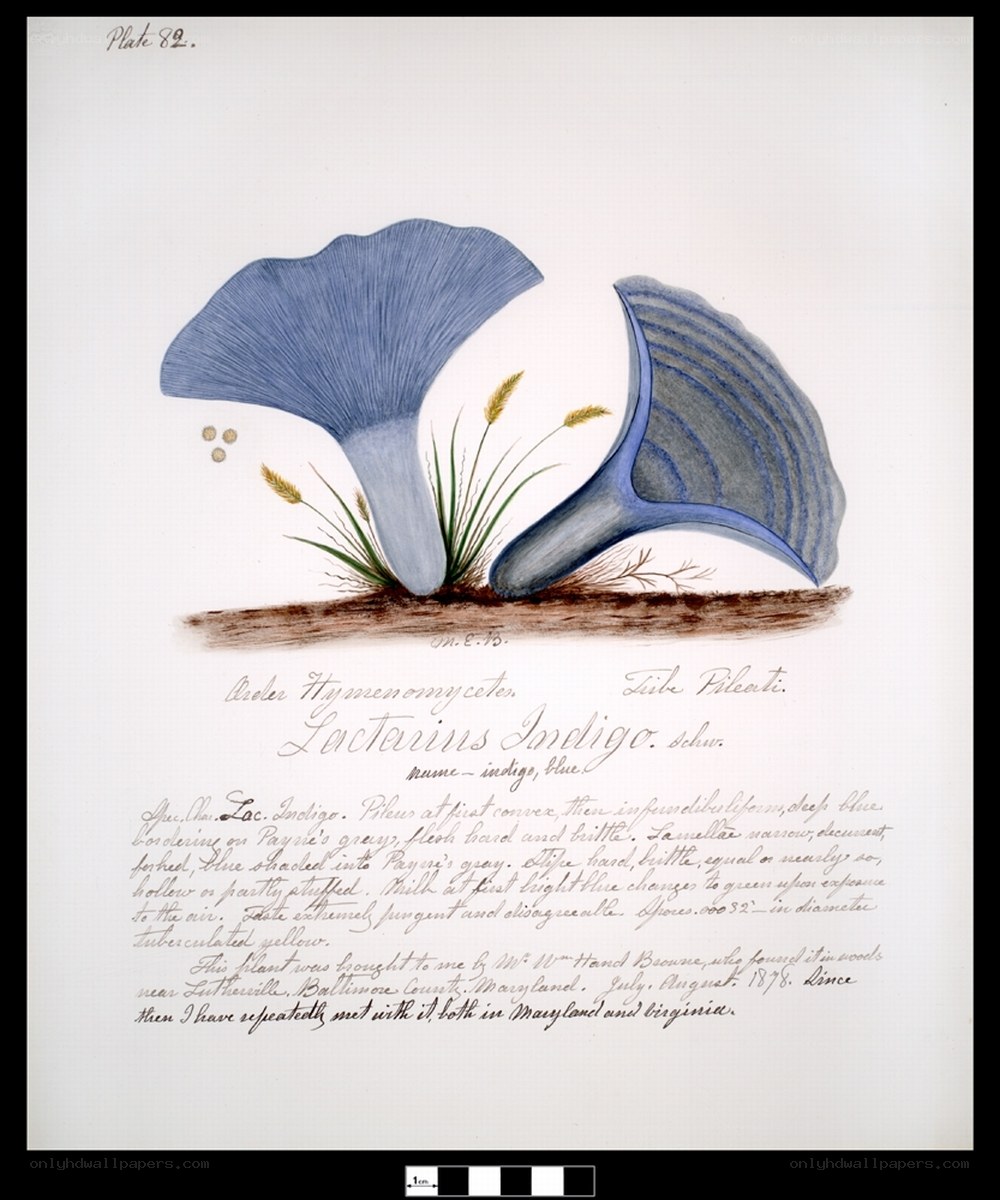 onlyhdwallpapers.com
onlyhdwallpapers.com
Plate 82.
M. E. B.
Order Hymenomycetes. Tribe Pileati.
Lactarius Indigo. Schw.
name – indigo, blue.
Spec. Cha. Lac. Indigo. Pileus at first convex, then infundibuliform, deep blue
bordering on Payne's gray, flesh hard and brittle. Lamellae narrow, decurrent,
forked, blue shaded into Payne's gray. Stipe hard, brittle, equal or nearly so,
hollow or partly stuffed. Milk at first bright blue changes to green upon exposure
to the air. Taste extremely pungent and disagreeable. Spores .00032"– in diameter
tuberculated yellow.
This plant was brought to me by Mr. Wm Hand Browne, who found it in woods
near Lutherville, Baltimore County, Maryland. July. August. 1878. Since
then I have repeatedly met with it, both in Maryland and Virginia.
onlyhdwallpapers.com
onlyhdwallpapers.com
1 cm.